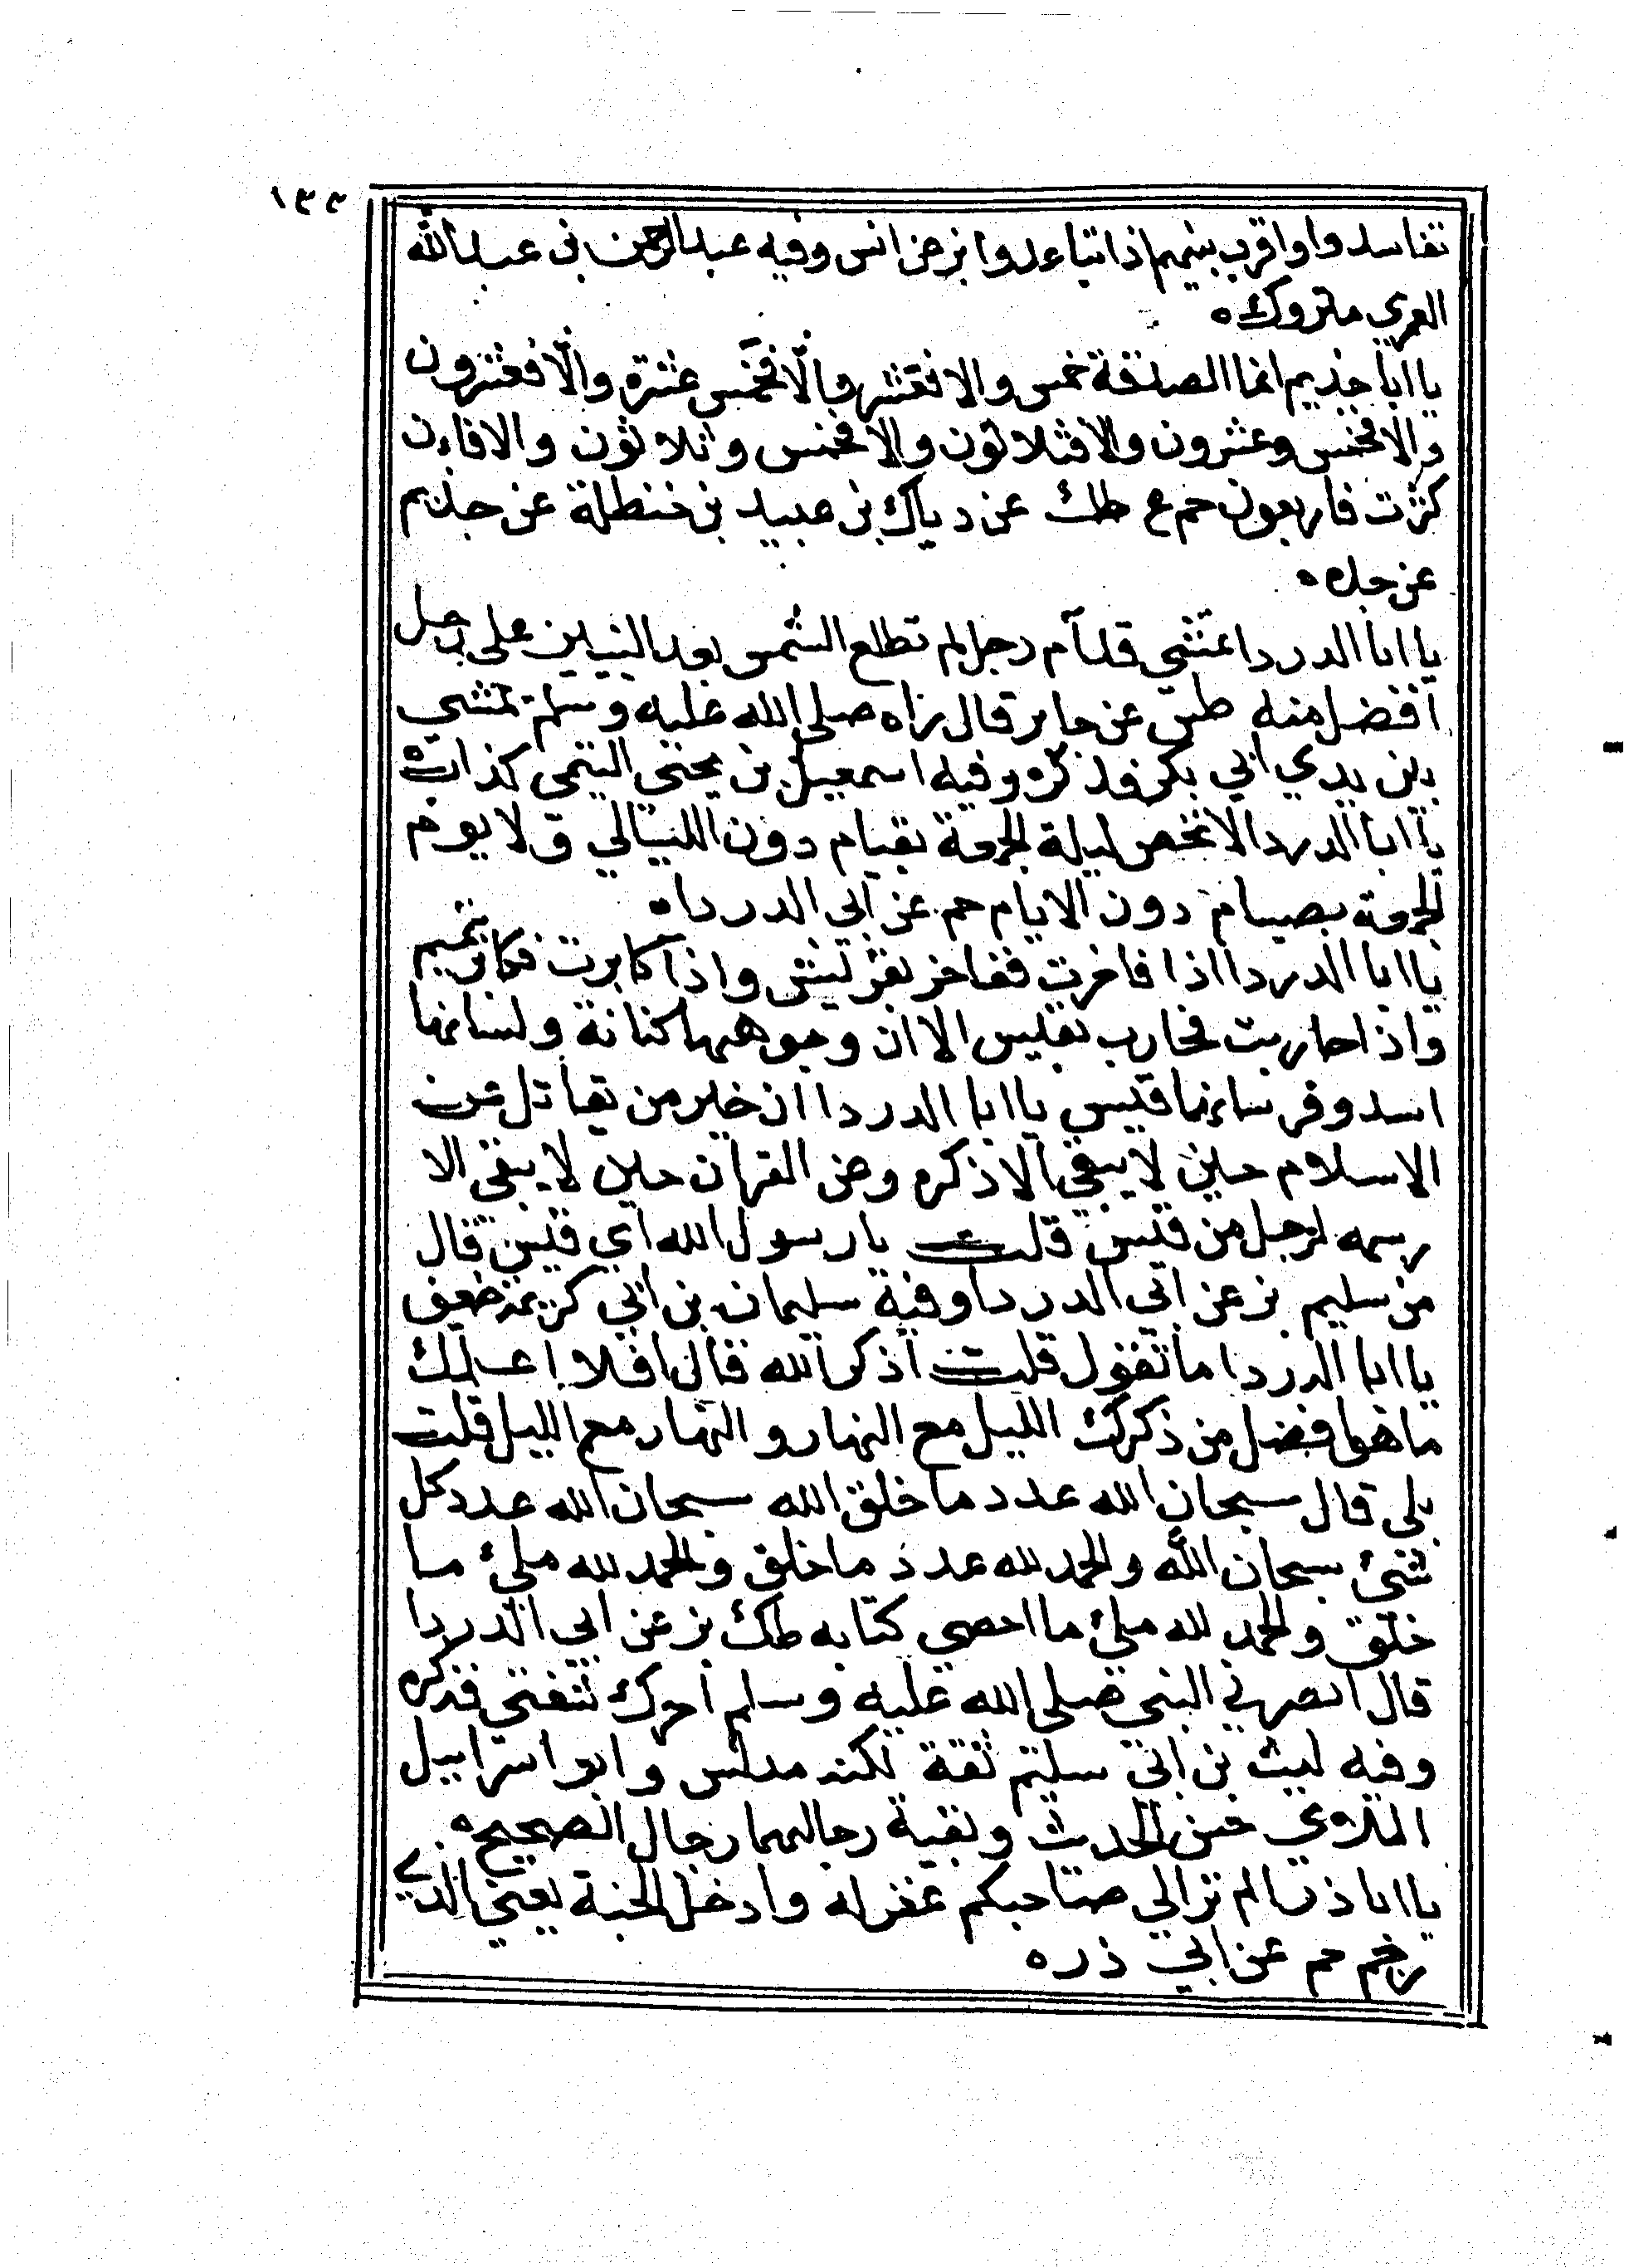 ١٣٣
تفاسدوا واقرب بينهم اذا تباعدوا بز عن انس وفيه عبدالرحمن بن عبدالله
العمري متروك ه
يا ابا حذيم انما الصدقة خمس والا فعشر والا فخمس عشرة والا فعشرون
والا فخمس وعشرون والا فثلاثون والا فخمس وثلاثون والا فان
كثرت فاربعون حم ع طك عن ذيال بن عبيد بن حنظلة عن حذيم
عن جده ه
يا ابا الدردا تمشي قدام رجل لم تطلع الشمس بعد النبيين على رجل
افضل منه طس عن جابر قال راه صلى الله عليه وسلم تمشي
بين يدي ابي بكر فذكره وفيه اسمعيل بن يحيى التيمى كذاب ه
يا ابا الدردا لا تخص ليلة الجمعة بقيام دون الليالي ولا يوم
الجمعة بصيام دون الايام حم عن ابي الدردا ه
يا ابا الدردا اذا فاخرت ففاخر بقريش واذا كاثرت فكاثر بتميم
واذا حاربت فحارب بقيس الا ان وجوهها كنانة ولسانها
اسد وفرسانها قيس يا ابا الدردا ان خير من تقاتل عن
الاسلام حين لا يبقى الا ذكره وعن القران حين لا يبقى الا
رسمه لرجل من قيس قلت يا رسول الله اي قيس قال
من سليم بز عن ابي الدردا وفيه سليمان بن ابي كريمة ضعيف
يا ابا الدردا ما تقول قلت اذكر الله قال افلا اعلمك
ما هو افضل من ذكرك الليل مع النهار والنهار مع الليل قلت
بلى قال سبحان الله عدد ما خلق الله سبحان الله عدد كل
شئ سبحان الله والحمد لله عدد ما خلق والحمد لله ملئ ما
خلق والحمد لله ملئ ما احصى كتابه طك بز عن ابي الدردا
قال ابصرني النبي صلى الله عليه وسلم احرك شفتى فذكره
وفيه ليث بن ابي سليم ثقة لكنه مدلس وابو اسرابيل
الملاوي حسن الحديث وبقية رجالهما رجال الصحيح ه
يا ابا ذر الم تر الي صاحبكم غفر له وادخل الجنة يعني الذي
رجم حم عن ابي ذر ه